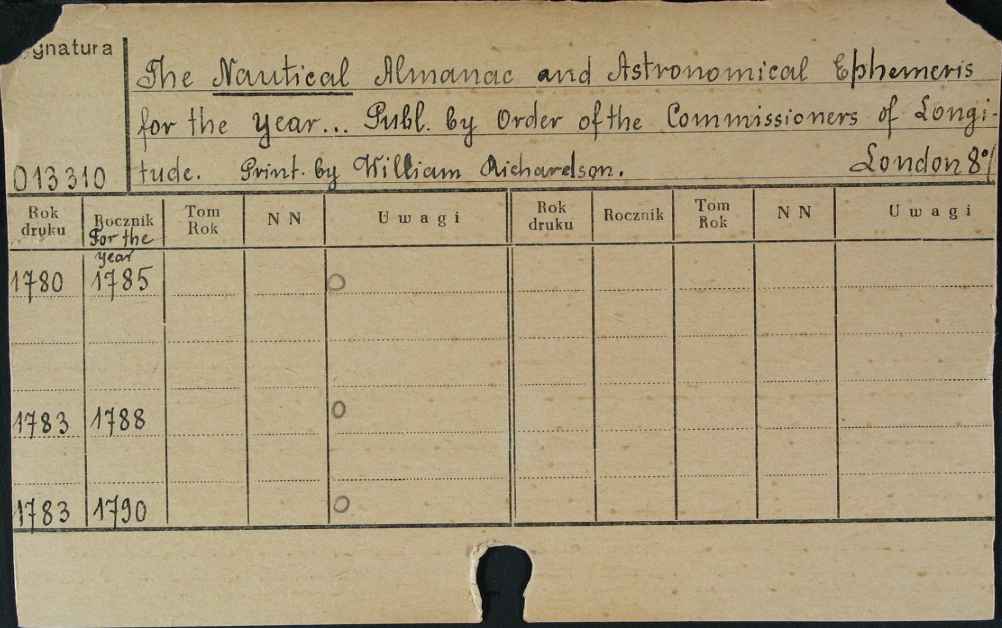 ygnatura
The Nautical Almanac and Astronomical Ephemeris
for the year... Publ. by Order of the Commissioners of Longi-
013310 tude. Print. by William Richardson. London 8°
Rok druku Rocznik Tom Rok NN Uwagi Rok druku Rocznik Tom Rok NN Uwagi
For the year
1780 1785 O
1783 1788 O
1783 1790 O